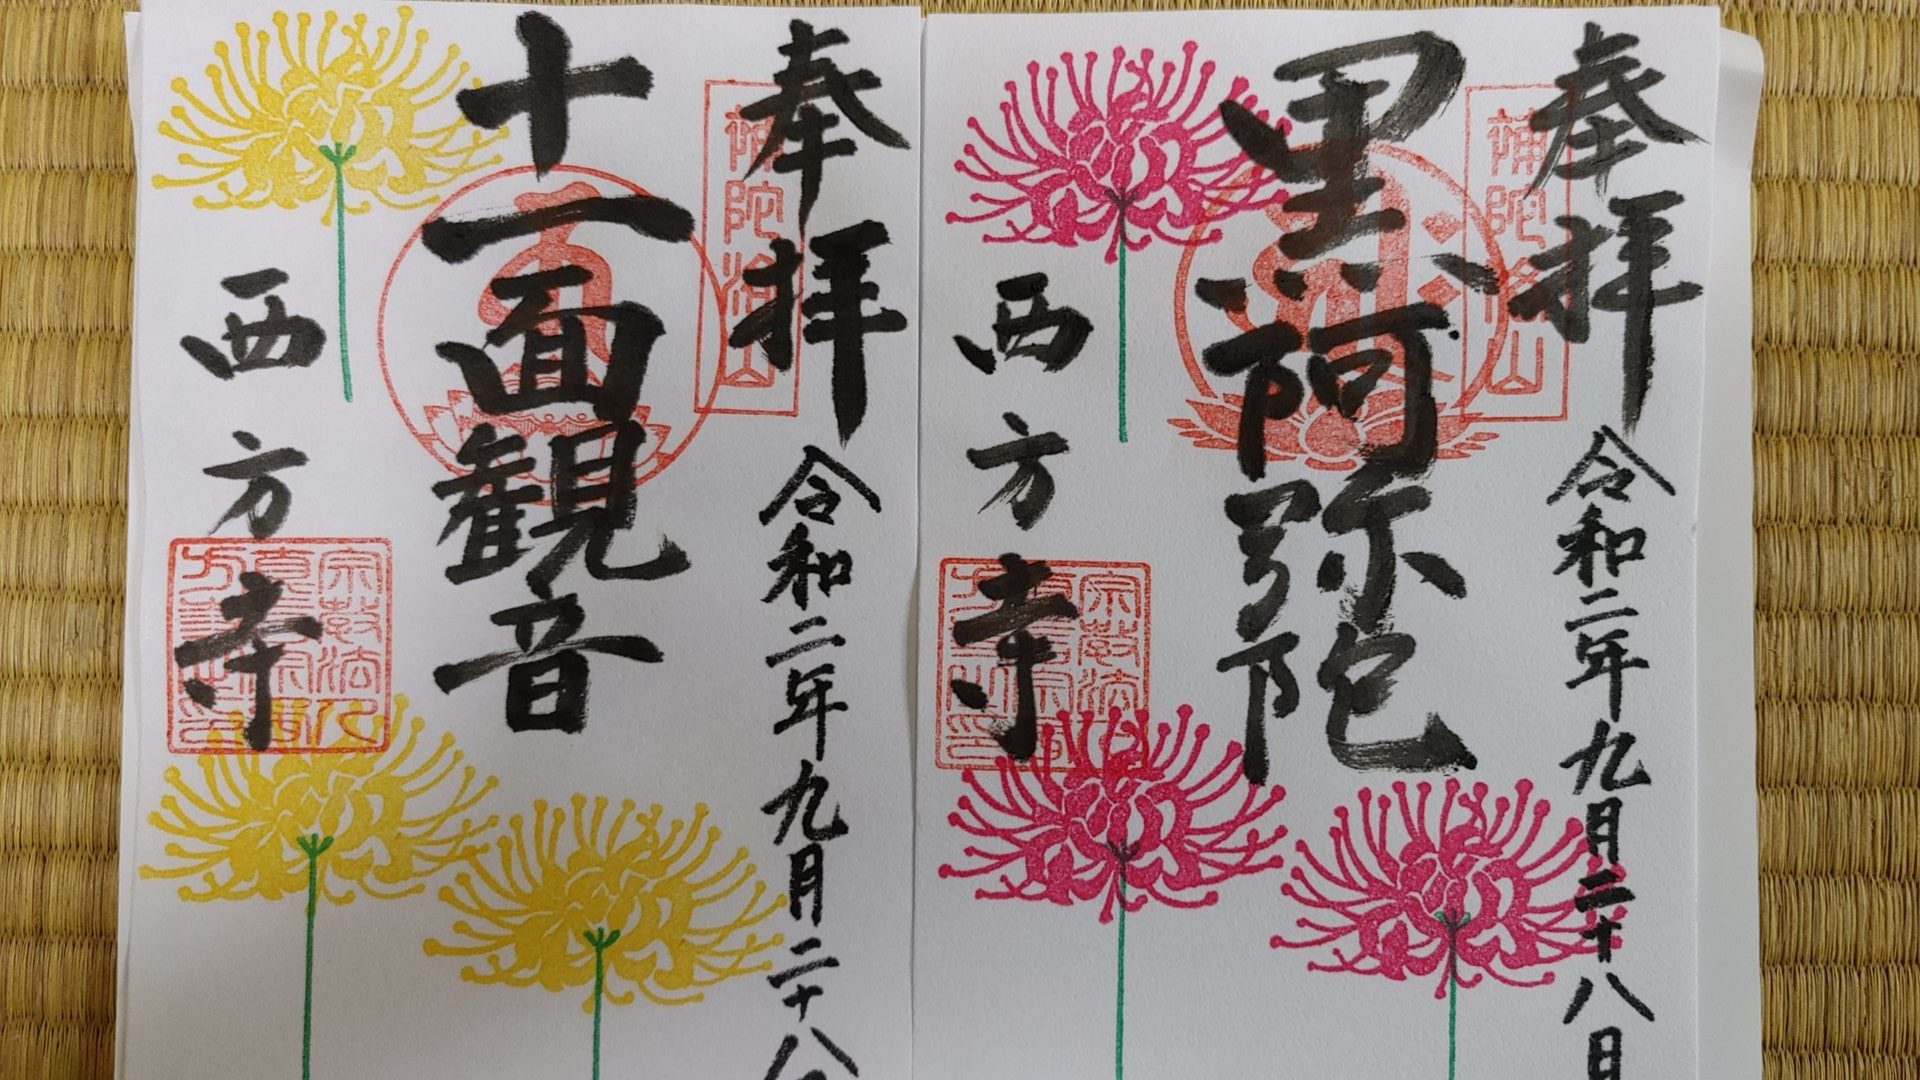 奉拝
令和二年九月二十八日
補陀洛山
黒阿弥陀
西方寺
奉拝
令和二年九月二十八
補陀洛山
十一面観音
西方寺